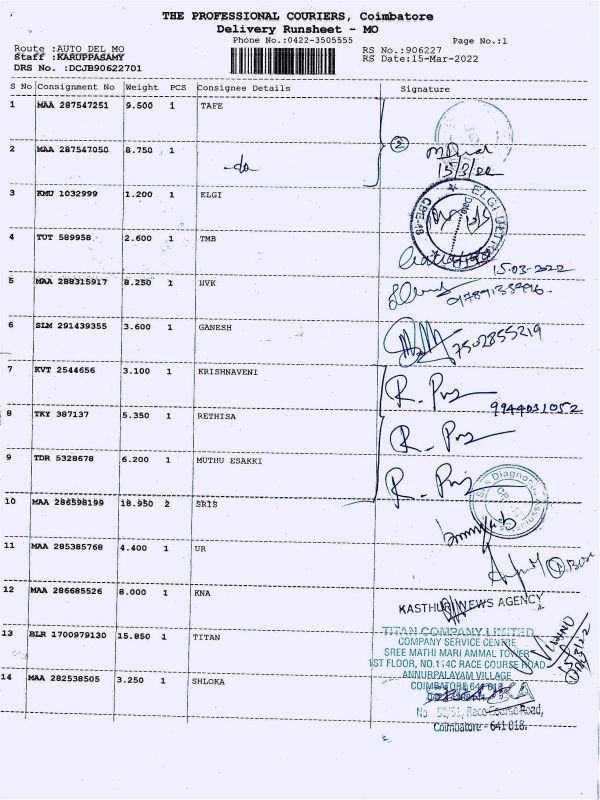 THE PROFESSIONAL COURIERS, Coimbatore
Delivery Runsheet - MO
Phone No.:0422-3505555
Page No.:1
Route :AUTO DEL MO
RS No.:906227
Staff :KARUPPASAMY
RS Date:15-Mar-2022
DRS No. :DCJB90622701
S No Consignment No Weight PCS Consignee Details Signature
1 MAA 287547251 9.500 1 TAFE
2 MAA 287547050 8.750 1 -do
②
15/3/22
3 KMU 1032999 1.200 1 ELGI
ELGI
CBE-18
4 TUT 589958 2.600 1 TMB
15-03-2022
5 MAA 288315917 8.250 1 HVK
6 SLM 291439355 3.600 1 GANESH
7502855219
7 KVT 2544656 3.100 1 KRISHNAVENI
9944031052
8 TKY 387137 5.350 1 RETHISA
9 TDR 5328678 6.200 1 MUTHU ESAKKI
10 MAA 286598199 18.950 2 SRIS
11 MAA 285385768 4.400 1 UR
12 MAA 286685526 8.000 1 KNA
KASTHURI NEWS AGENCY
13 BLR 1700979130 15.850 1 TITAN
TITAN COMPANY LIMITED
COMPANY SERVICE CENTRE
SREE MATHI MARI AMMAL TOWER
1ST FLOOR, NO.114C RACE COURSE ROAD
ANNURPALAYAM VILLAGE
COIMBATORE 641 018
14 MAA 282538505 3.250 1 SHLOKA
No 50/51, Race Course Road,
Coimbatore - 641 018.